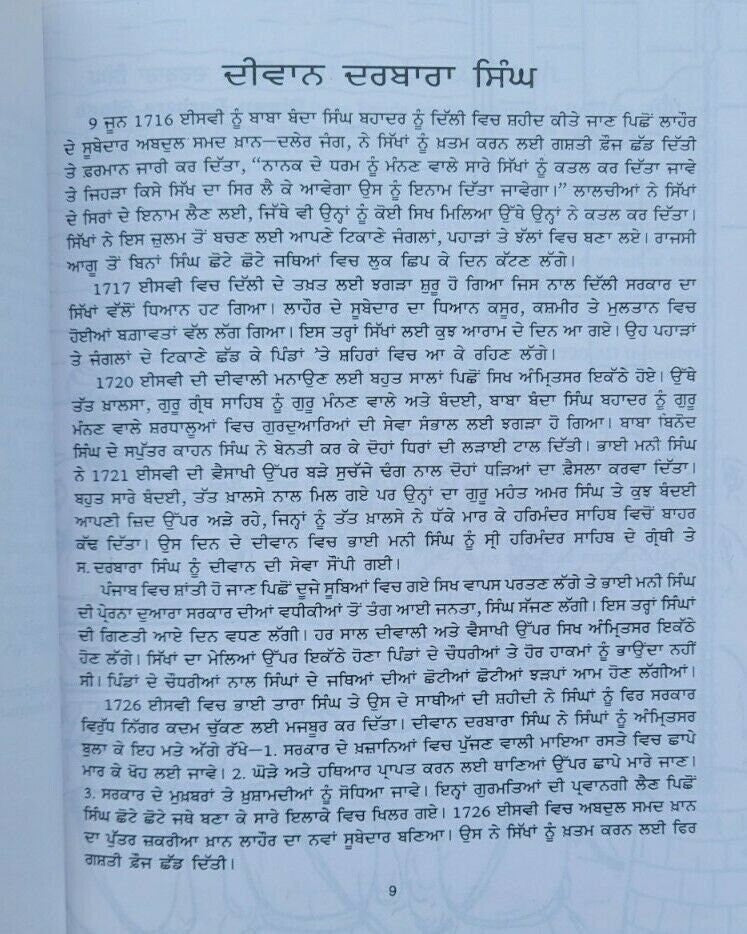 ਦੀਵਾਨ ਦਰਬਾਰਾ ਸਿੰਘ
9 ਜੂਨ 1716 ਈਸਵੀ ਨੂੰ ਬਾਬਾ ਬੰਦਾ ਸਿੰਘ ਬਹਾਦਰ ਨੂੰ ਦਿੱਲੀ ਵਿਚ ਸ਼ਹੀਦ ਕੀਤੇ ਜਾਣ ਪਿਛੋਂ ਲਾਹੌਰ
ਦੇ ਸੂਬੇਦਾਰ ਅਬਦੁਲ ਸਮਦ ਖ਼ਾਨ—ਦਲੇਰ ਜੰਗ, ਨੇ ਸਿੱਖਾਂ ਨੂੰ ਖ਼ਤਮ ਕਰਨ ਲਈ ਗਸ਼ਤੀ ਫ਼ੌਜ ਛੱਡ ਦਿੱਤੀ
ਤੇ ਫ਼ਰਮਾਨ ਜਾਰੀ ਕਰ ਦਿੱਤਾ, “ਨਾਨਕ ਦੇ ਧਰਮ ਨੂੰ ਮੰਨਣ ਵਾਲੇ ਸਾਰੇ ਸਿੱਖਾਂ ਨੂੰ ਕਤਲ ਕਰ ਦਿੱਤਾ ਜਾਵੇ
ਤੇ ਜਿਹੜਾ ਕਿਸੇ ਸਿੱਖ ਦਾ ਸਿਰ ਲੈ ਕੇ ਆਵੇਗਾ ਉਸ ਨੂੰ ਇਨਾਮ ਦਿੱਤਾ ਜਾਵੇਗਾ।” ਲਾਲਚੀਆਂ ਨੇ ਸਿੱਖਾਂ
ਦੇ ਸਿਰਾਂ ਦੇ ਇਨਾਮ ਲੈਣ ਲਈ, ਜਿੱਥੇ ਵੀ ਉਨ੍ਹਾਂ ਨੂੰ ਕੋਈ ਸਿਖ ਮਿਲਿਆ ਉੱਥੇ ਉਨ੍ਹਾਂ ਨੇ ਕਤਲ ਕਰ ਦਿੱਤਾ।
ਸਿੱਖਾਂ ਨੇ ਇਸ ਜ਼ੁਲਮ ਤੋਂ ਬਚਣ ਲਈ ਆਪਣੇ ਟਿਕਾਣੇ ਜੰਗਲਾਂ, ਪਹਾੜਾਂ ਤੇ ਝੱਲਾਂ ਵਿਚ ਬਣਾ ਲਏ। ਰਾਜਸੀ
ਆਗੂ ਤੋਂ ਬਿਨਾਂ ਸਿੰਘ ਛੋਟੇ ਛੋਟੇ ਜਥਿਆਂ ਵਿਚ ਲੁਕ ਛਿਪ ਕੇ ਦਿਨ ਕੱਟਣ ਲੱਗੇ।
1717 ਈਸਵੀ ਵਿਚ ਦਿੱਲੀ ਦੇ ਤਖ਼ਤ ਲਈ ਝਗੜਾ ਸ਼ੁਰੂ ਹੋ ਗਿਆ ਜਿਸ ਨਾਲ ਦਿੱਲੀ ਸਰਕਾਰ ਦਾ
ਸਿੱਖਾਂ ਵੱਲੋਂ ਧਿਆਨ ਹਟ ਗਿਆ। ਲਾਹੌਰ ਦੇ ਸੂਬੇਦਾਰ ਦਾ ਧਿਆਨ ਕਸੂਰ, ਕਸ਼ਮੀਰ ਤੇ ਮੁਲਤਾਨ ਵਿਚ
ਹੋਈਆਂ ਬਗ਼ਾਵਤਾਂ ਵੱਲ ਲੱਗ ਗਿਆ। ਇਸ ਤਰ੍ਹਾਂ ਸਿੱਖਾਂ ਲਈ ਕੁਝ ਆਰਾਮ ਦੇ ਦਿਨ ਆ ਗਏ। ਉਹ ਪਹਾੜਾਂ
ਤੇ ਜੰਗਲਾਂ ਦੇ ਟਿਕਾਣੇ ਛੱਡ ਕੇ ਪਿੰਡਾਂ ’ਤੇ ਸ਼ਹਿਰਾਂ ਵਿਚ ਆ ਕੇ ਰਹਿਣ ਲੱਗੇ।
1720 ਈਸਵੀ ਦੀ ਦੀਵਾਲੀ ਮਨਾਉਣ ਲਈ ਬਹੁਤ ਸਾਲਾਂ ਪਿਛੋਂ ਸਿਖ ਅੰਮ੍ਰਿਤਸਰ ਇਕੱਠੇ ਹੋਏ। ਉੱਥੇ
ਤੱਤ ਖ਼ਾਲਸਾ, ਗੁਰੂ ਗ੍ਰੰਥ ਸਾਹਿਬ ਨੂੰ ਗੁਰੂ ਮੰਨਣ ਵਾਲੇ ਅਤੇ ਬੰਦਈ, ਬਾਬਾ ਬੰਦਾ ਸਿੰਘ ਬਹਾਦਰ ਨੂੰ ਗੁਰੂ
ਮੰਨਣ ਵਾਲੇ ਸ਼ਰਧਾਲੂਆਂ ਵਿਚ ਗੁਰਦੁਆਰਿਆਂ ਦੀ ਸੇਵਾ ਸੰਭਾਲ ਲਈ ਝਗੜਾ ਹੋ ਗਿਆ। ਬਾਬਾ ਬਿਨੋਦ
ਸਿੰਘ ਦੇ ਸਪੁੱਤਰ ਕਾਹਨ ਸਿੰਘ ਨੇ ਬੇਨਤੀ ਕਰ ਕੇ ਦੋਹਾਂ ਧਿਰਾਂ ਦੀ ਲੜਾਈ ਟਾਲ ਦਿੱਤੀ। ਭਾਈ ਮਨੀ ਸਿੰਘ
ਨੇ 1721 ਈਸਵੀ ਦੀ ਵੈਸਾਖੀ ਉੱਪਰ ਬੜੇ ਸੁਚੱਜੇ ਢੰਗ ਨਾਲ ਦੋਹਾਂ ਧੜਿਆਂ ਦਾ ਫ਼ੈਸਲਾ ਕਰਵਾ ਦਿੱਤਾ।
ਬਹੁਤ ਸਾਰੇ ਬੰਦਈ, ਤੱਤ ਖ਼ਾਲਸੇ ਨਾਲ ਮਿਲ ਗਏ ਪਰ ਉਨ੍ਹਾਂ ਦਾ ਗੁਰੂ ਮਹੰਤ ਅਮਰ ਸਿੰਘ ਤੇ ਕੁਝ ਬੰਦਈ
ਆਪਣੀ ਜ਼ਿਦ ਉੱਪਰ ਅੜੇ ਰਹੇ, ਜਿਨ੍ਹਾਂ ਨੂੰ ਤੱਤ ਖ਼ਾਲਸੇ ਨੇ ਧੱਕੇ ਮਾਰ ਕੇ ਹਰਿਮੰਦਰ ਸਾਹਿਬ ਵਿਚੋਂ ਬਾਹਰ
ਕੱਢ ਦਿੱਤਾ। ਉਸ ਦਿਨ ਦੇ ਦੀਵਾਨ ਵਿਚ ਭਾਈ ਮਨੀ ਸਿੰਘ ਨੂੰ ਸ੍ਰੀ ਹਰਿਮੰਦਰ ਸਾਹਿਬ ਦੇ ਗ੍ਰੰਥੀ ਤੇ
ਸ. ਦਰਬਾਰਾ ਸਿੰਘ ਨੂੰ ਦੀਵਾਨ ਦੀ ਸੇਵਾ ਸੌਂਪੀ ਗਈ।
ਪੰਜਾਬ ਵਿਚ ਸ਼ਾਂਤੀ ਹੋ ਜਾਣ ਪਿਛੋਂ ਦੂਜੇ ਸੂਬਿਆਂ ਵਿਚ ਗਏ ਸਿਖ ਵਾਪਸ ਪਰਤਣ ਲੱਗੇ ਤੇ ਭਾਈ ਮਨੀ ਸਿੰਘ
ਦੀ ਪ੍ਰੇਰਨਾ ਦੁਆਰਾ ਸਰਕਾਰ ਦੀਆਂ ਵਧੀਕੀਆਂ ਤੋਂ ਤੰਗ ਆਈ ਜਨਤਾ, ਸਿੰਘ ਸੱਜਣ ਲੱਗੀ। ਇਸ ਤਰ੍ਹਾਂ ਸਿੰਘਾਂ
ਦੀ ਗਿਣਤੀ ਆਏ ਦਿਨ ਵਧਣ ਲੱਗੀ। ਹਰ ਸਾਲ ਦੀਵਾਲੀ ਅਤੇ ਵੈਸਾਖੀ ਉੱਪਰ ਸਿਖ ਅੰਮ੍ਰਿਤਸਰ ਇਕੱਠੇ
ਹੋਣ ਲੱਗੇ। ਸਿੱਖਾਂ ਦਾ ਮੇਲਿਆਂ ਉੱਪਰ ਇਕੱਠੇ ਹੋਣਾ ਪਿੰਡਾਂ ਦੇ ਚੌਧਰੀਆਂ ਤੇ ਹੋਰ ਹਾਕਮਾਂ ਨੂੰ ਭਾਉਂਦਾ ਨਹੀਂ
ਸੀ। ਪਿੰਡਾਂ ਦੇ ਚੌਧਰੀਆਂ ਨਾਲ ਸਿੰਘਾਂ ਦੇ ਜਥਿਆਂ ਦੀਆਂ ਛੋਟੀਆਂ ਛੋਟੀਆਂ ਝੜਪਾਂ ਆਮ ਹੋਣ ਲੱਗੀਆਂ।
1726 ਈਸਵੀ ਵਿਚ ਭਾਈ ਤਾਰਾ ਸਿੰਘ ਤੇ ਉਸ ਦੇ ਸਾਥੀਆਂ ਦੀ ਸ਼ਹੀਦੀ ਨੇ ਸਿੰਘਾਂ ਨੂੰ ਫਿਰ ਸਰਕਾਰ
ਵਿਰੁੱਧ ਨਿੱਗਰ ਕਦਮ ਚੁੱਕਣ ਲਈ ਮਜਬੂਰ ਕਰ ਦਿੱਤਾ। ਦੀਵਾਨ ਦਰਬਾਰਾ ਸਿੰਘ ਨੇ ਸਿੰਘਾਂ ਨੂੰ ਅੰਮ੍ਰਿਤਸਰ
ਬੁਲਾ ਕੇ ਇਹ ਮਤੇ ਅੱਗੇ ਰੱਖੇ—1. ਸਰਕਾਰ ਦੇ ਖ਼ਜ਼ਾਨਿਆਂ ਵਿਚ ਪੁੱਜਣ ਵਾਲੀ ਮਾਇਆ ਰਸਤੇ ਵਿਚ ਛਾਪੇ
ਮਾਰ ਕੇ ਖੋਹ ਲਈ ਜਾਵੇ। 2. ਘੋੜੇ ਅਤੇ ਹਥਿਆਰ ਪ੍ਰਾਪਤ ਕਰਨ ਲਈ ਥਾਣਿਆਂ ਉੱਪਰ ਛਾਪੇ ਮਾਰੇ ਜਾਣ।
3. ਸਰਕਾਰ ਦੇ ਮੁਖ਼ਬਰਾਂ ਤੇ ਖ਼ੁਸ਼ਾਮਦੀਆਂ ਨੂੰ ਸੋਧਿਆ ਜਾਵੇ। ਇਨ੍ਹਾਂ ਗੁਰਮਤਿਆਂ ਦੀ ਪ੍ਰਵਾਨਗੀ ਲੈਣ ਪਿਛੋਂ
ਸਿੰਘ ਛੋਟੇ ਛੋਟੇ ਜਥੇ ਬਣਾ ਕੇ ਸਾਰੇ ਇਲਾਕੇ ਵਿਚ ਖਿਲਰ ਗਏ। 1726 ਈਸਵੀ ਵਿਚ ਅਬਦਲ ਸਮਦ ਖ਼ਾਨ
ਦਾ ਪੁੱਤਰ ਜ਼ਕਰੀਆ ਖ਼ਾਨ ਲਾਹੌਰ ਦਾ ਨਵਾਂ ਸੂਬੇਦਾਰ ਬਣਿਆ। ਉਸ ਨੇ ਸਿੱਖਾਂ ਨੂੰ ਖ਼ਤਮ ਕਰਨ ਲਈ ਫਿਰ
ਗਸ਼ਤੀ ਫ਼ੌਜ ਛੱਡ ਦਿੱਤੀ।
9